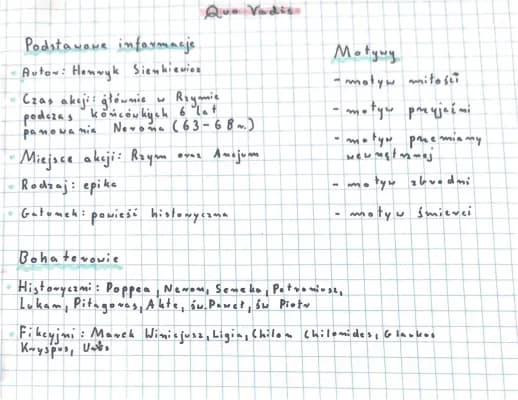 Quo Vadis
Podstawowe informacje
Autor: Henryk Sienkiewicz
Czas akcji: głównie w Rzymie
podczas końcowych 6 lat
panowania Nerona (63-68 r.)
Miejsce akcji: Rzym oraz Ancjum
Rodzaj: epika
Gatunek: powieść historyczna
Motywy
- motyw miłości
- motyw przyjaźni
- motyw przemiany
wewnętrznej
- motyw zbrodni
- motyw śmierci
Bohaterowie
Historyczni: Poppea, Neron, Seneka, Petroniusz,
Lukan, Pitagoras, Akte, św. Paweł, św Piotr
Fikcyjni: Marek Winicjusz, Ligia, Chilon Chilonides, Glaukos
Kryspus, Ursus